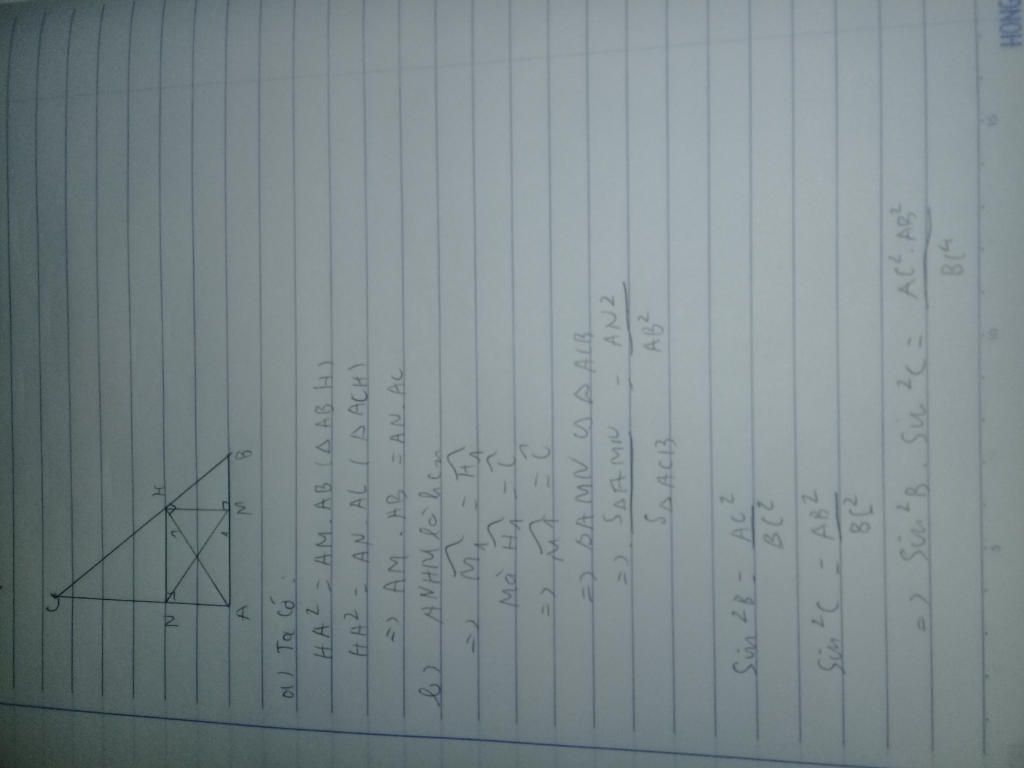 C
H
N
A
M
B
1
1
a) Ta Có:
HA² = AM.AB (△ABH)
HA² = AN.AC (△ACH)
=> AM.AB = AN.AC
b) ANHM là hcn
=> M̂₁ = Ĥ₁
Mà Ĥ₁ = Ĉ
=> M̂₁ = Ĉ
=> △AMN ∽ △ACB
=> S△AMN / S△ACB = AN² / AB²
Sin²B = AC² / BC²
Sin²C = AB² / BC²
=> Sin²B. Sin²C = AC².AB² / BC⁴
HONG
5
10
15